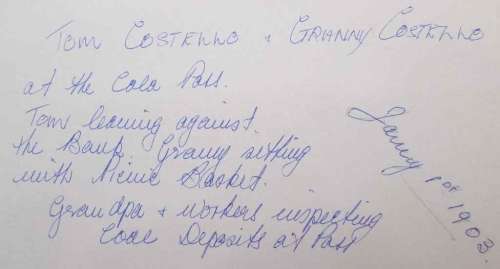 TOM COSTELLO & GRANNY COSTELLO
at the Cola Pass.
Tom leaning against
the Bank. Granny sitting
with Picnic Basket.
Grandpa & workers inspecting
Coal Deposits at Pass